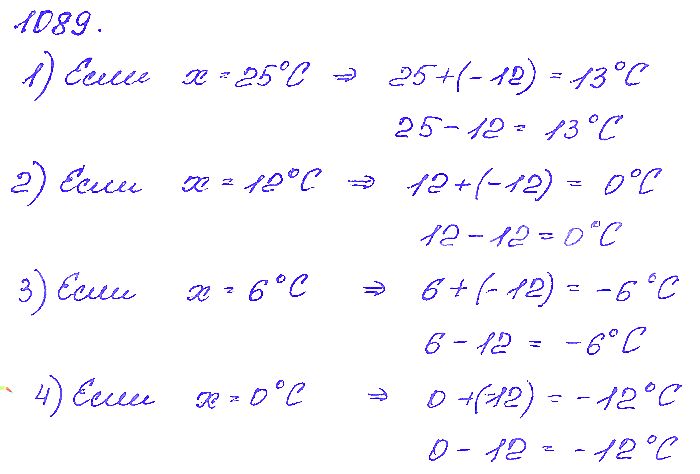 1089.
1) Если x = 25°C ⇒ 25+(-12) = 13°C
25-12 = 13°C
2) Если x = 12°C ⇒ 12+(-12) = 0°C
12-12 = 0°C
3) Если x = 6°C ⇒ 6+(-12) = -6°C
6-12 = -6°C
4) Если x = 0°C ⇒ 0+(-12) = -12°C
0-12 = -12°C